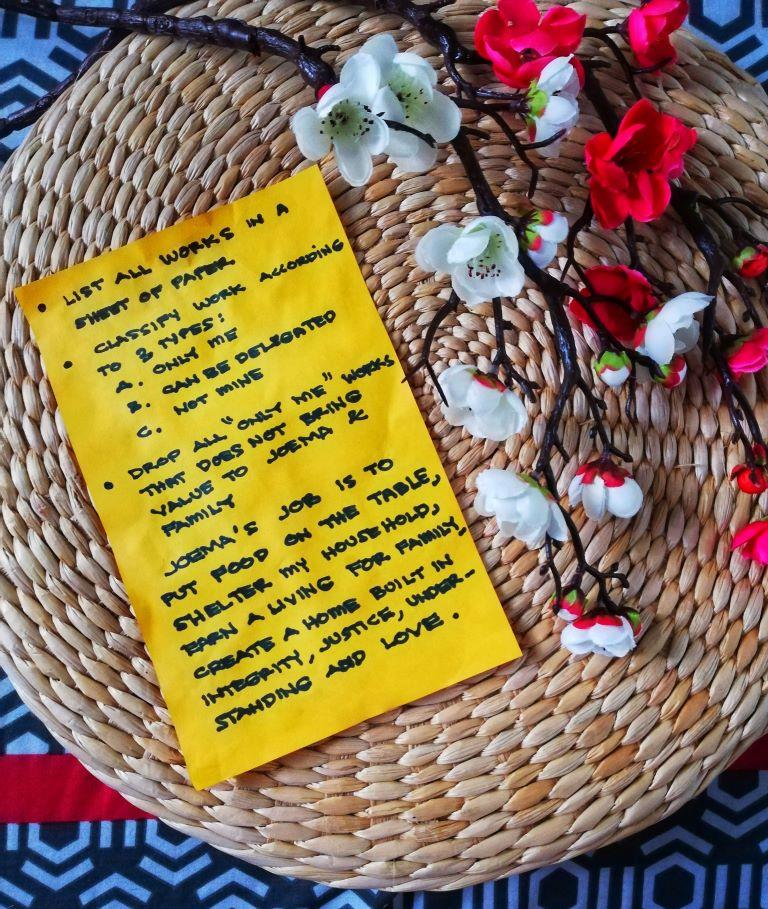 • LIST ALL WORKS IN A
SHEET OF PAPER
• CLASSIFY WORK ACCORDING
TO 3 TYPES:
A. ONLY ME
B. CAN BE DELEGATED
C. NOT MINE
• DROP ALL "ONLY ME" WORKS
THAT DOES NOT BRING
VALUE TO JOEMA &
FAMILY
JOEMA'S JOB IS TO
PUT FOOD ON THE TABLE,
SHELTER MY HOUSEHOLD,
EARN A LIVING FOR FAMILY,
CREATE A HOME BUILT IN
INTEGRITY, JUSTICE, UNDER-
STANDING AND LOVE.